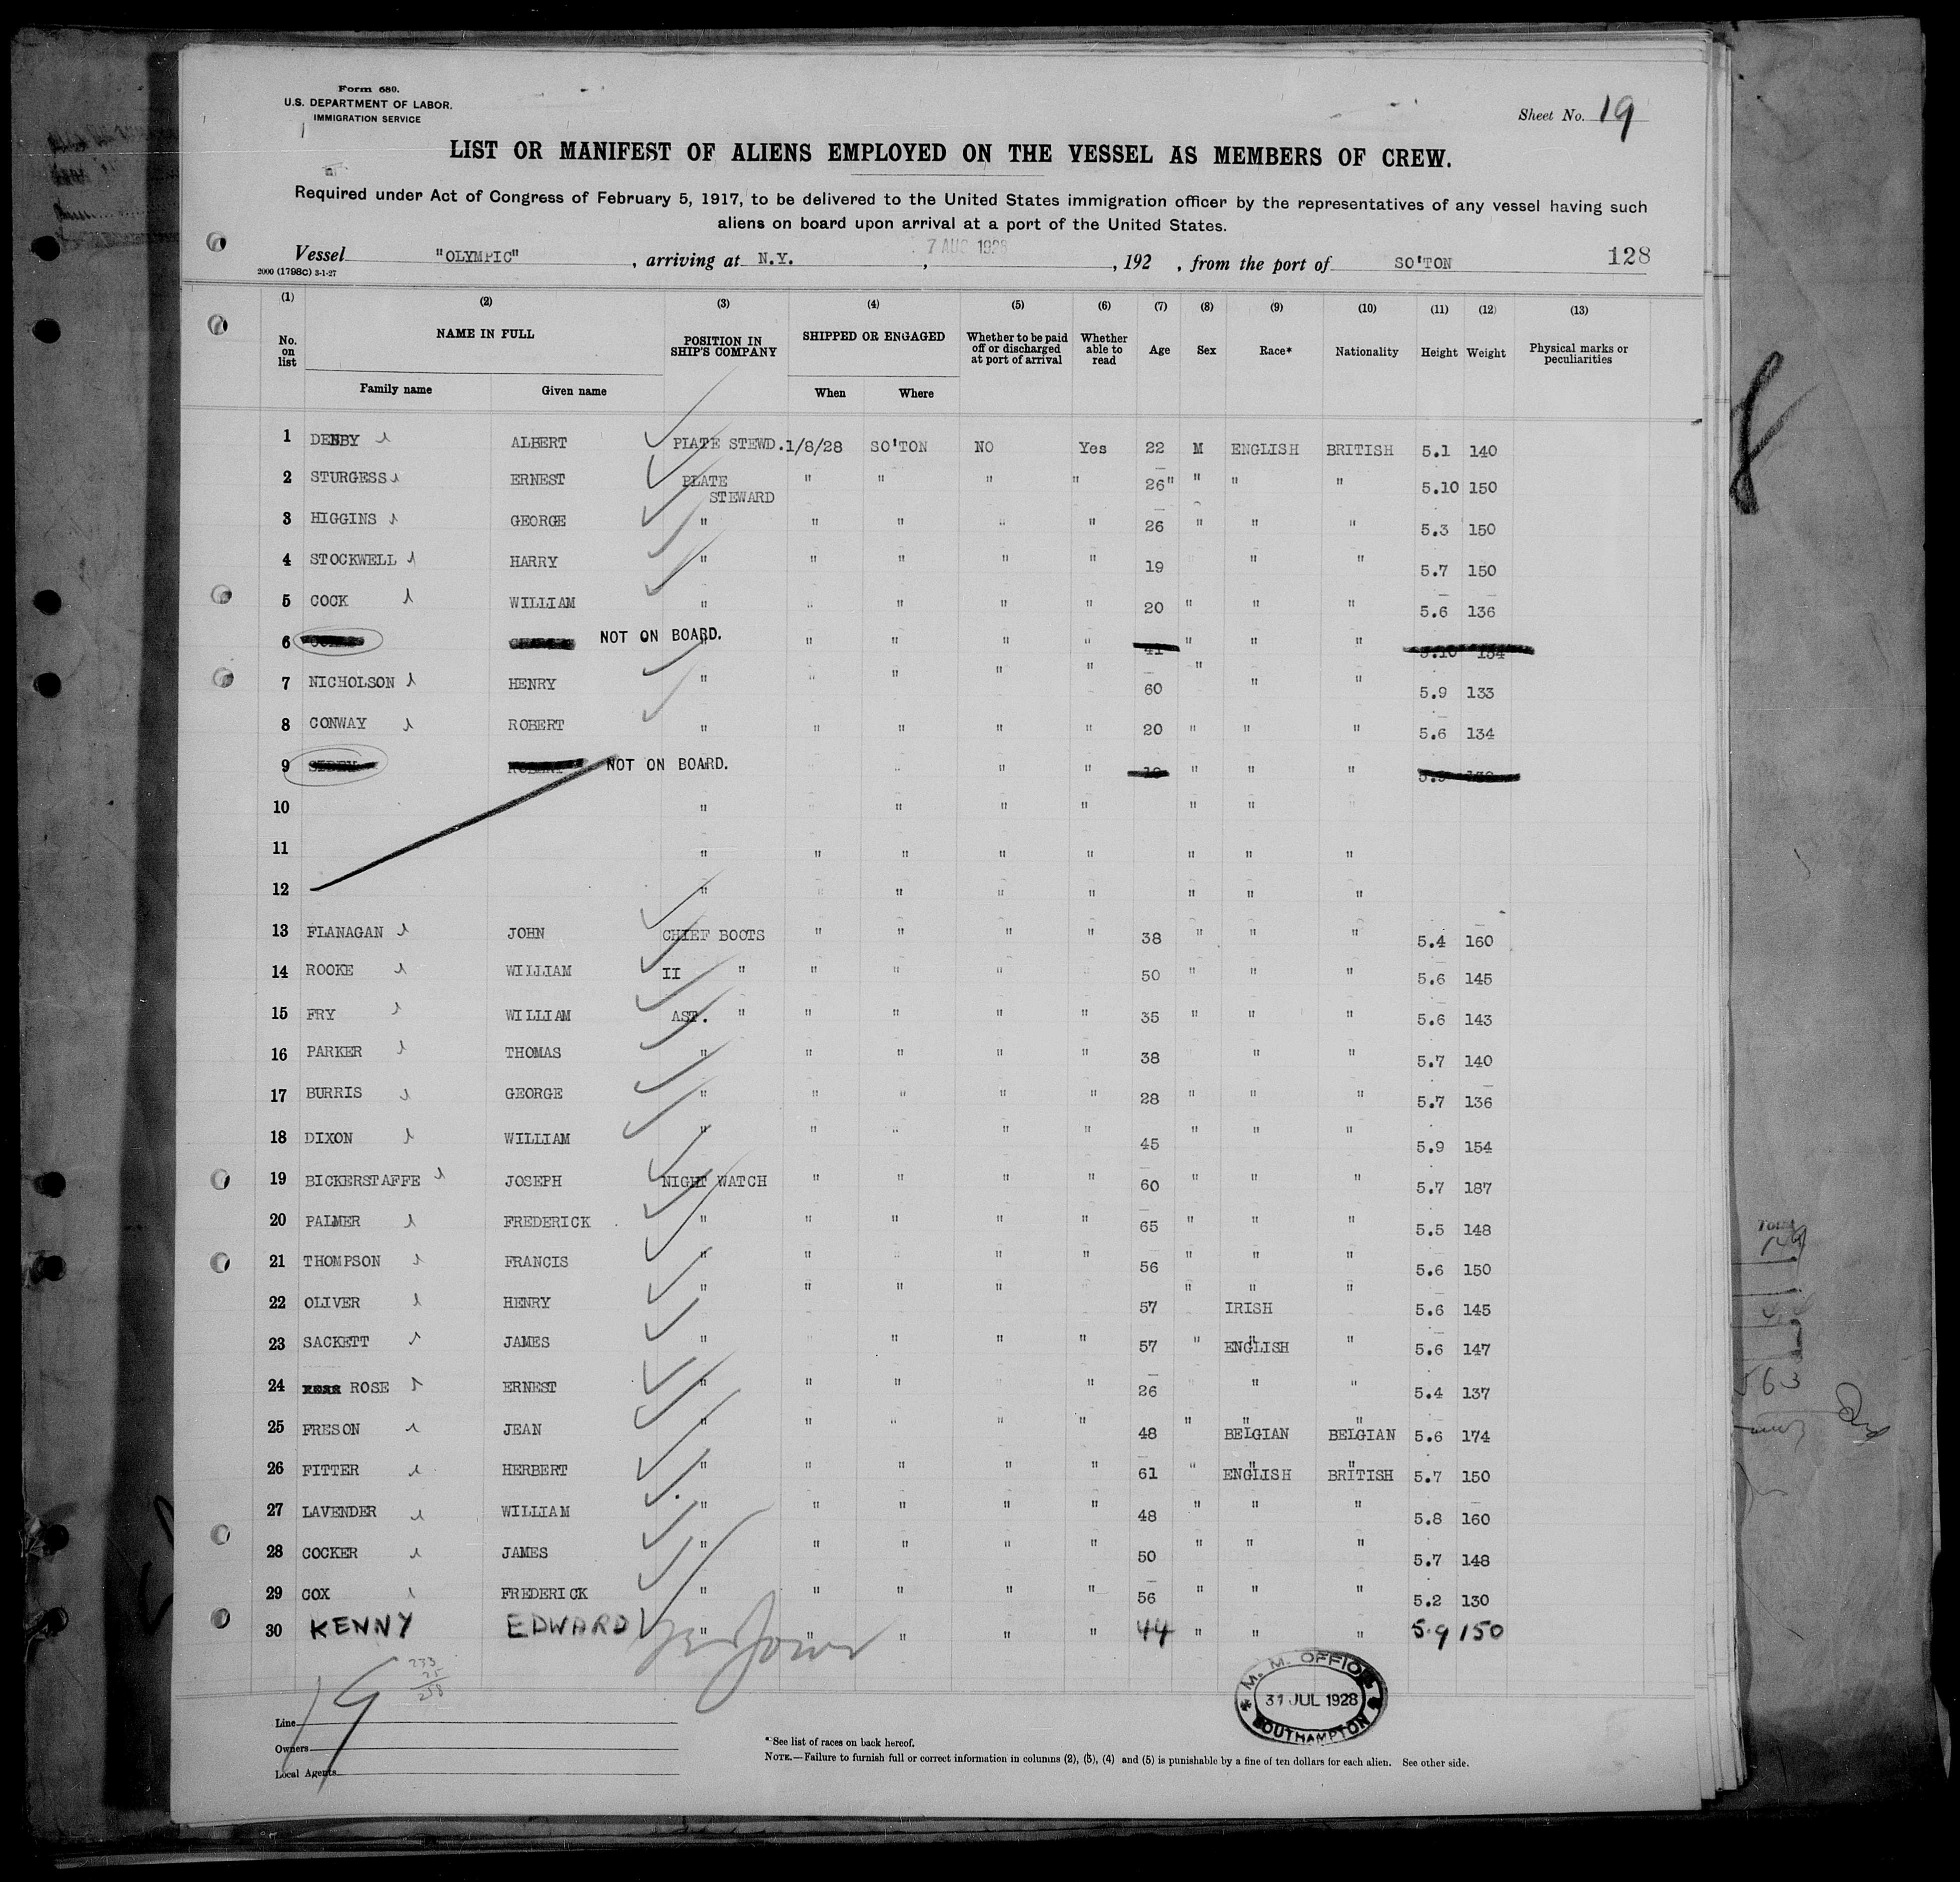 Form 680.
U.S. DEPARTMENT OF LABOR.
IMMIGRATION SERVICE
Sheet No. 19
LIST OR MANIFEST OF ALIENS EMPLOYED ON THE VESSEL AS MEMBERS OF CREW.
Required under Act of Congress of February 5, 1917, to be delivered to the United States immigration officer by the representatives of any vessel having such
aliens on board upon arrival at a port of the United States.
Vessel "OLYMPIC", arriving at N.Y. 7 AUG 1928, 192 , from the port of SO'TON 128
2000 (1798c) 3-1-27
(1) (2) (3) (4) (5) (6) (7) (8) (9) (10) (11) (12) (13)
No. on list NAME IN FULL POSITION IN SHIP'S COMPANY SHIPPED OR ENGAGED Whether to be paid off or discharged at port of arrival Whether able to read Age Sex Race* Nationality Height Weight Physical marks or peculiarities
Family name Given name When Where
1 DENBY ALBERT PLATE STEWD. 1/8/28 SO'TON NO Yes 22 M ENGLISH BRITISH 5.1 140
2 STURGESS ERNEST PLATE STEWARD " " " " 26 " " " " 5.10 150
3 HIGGINS GEORGE " " " " " 26 " " " 5.3 150
4 STOCKWELL HARRY " " " " " 19 " " 5.7 150
5 COCK WILLIAM " " " " " 20 " " " 5.6 136
6 NOT ON BOARD. " " " " " 41 " " " 5.10 154
7 NICHOLSON HENRY " " " " " 60 " " " 5.9 133
8 CONWAY ROBERT " " " " " 20 " " " 5.6 134
9 NOT ON BOARD. " " " " " "
10 " " " " " "
11 " " " " " " " "
12 " " " " " " " "
13 FLANAGAN JOHN CHIEF BOOTS " " " " 38 " " " 5.4 160
14 ROOKE WILLIAM II " " " " 50 " " " 5.6 145
15 FRY WILLIAM AST. " " " " " 35 " " " 5.6 143
16 PARKER THOMAS " " " " " 38 " " 5.7 140
17 BURRIS GEORGE " " " " " 28 " " " 5.7 136
18 DIXON WILLIAM " " " " " 45 " " " 5.9 154
19 BICKERSTAFFE JOSEPH NIGHT WATCH " " " " 60 " " " 5.7 187
20 PALMER FREDERICK " " " " " 65 " " " 5.5 148
21 THOMPSON FRANCIS " " " " " 56 " " " 5.6 150
22 OLIVER HENRY " " " " 57 " " IRISH 5.6 145
23 SACKETT JAMES " " " " 57 " " ENGLISH " 5.6 147
24 ROSE ERNEST " " " " 26 " " 5.4 137
25 FRESON JEAN " " " " " 48 " " BELGIAN " BELGIAN 5.6 174
26 FITTER HERBERT " " " " " 61 " " ENGLISH " BRITISH 5.7 150
27 LAVENDER WILLIAM " " " " " 48 " " " 5.8 160
28 COCKER JAMES " " " " " 50 " " " 5.7 148
29 COX FREDERICK " " " " " 56 " " " 5.2 130
30 KENNY EDWARD " " " " " 44 " " " 5.9 150
233
25
258
19
M. M. OFFICE
31 JUL 1928
SOUTHAMPTON
Line
Owners
Local Agents
* See list of races on back hereof.
NOTE.—Failure to furnish full or correct information in columns (2), (3), (4) and (5) is punishable by a fine of ten dollars for each alien. See other side.